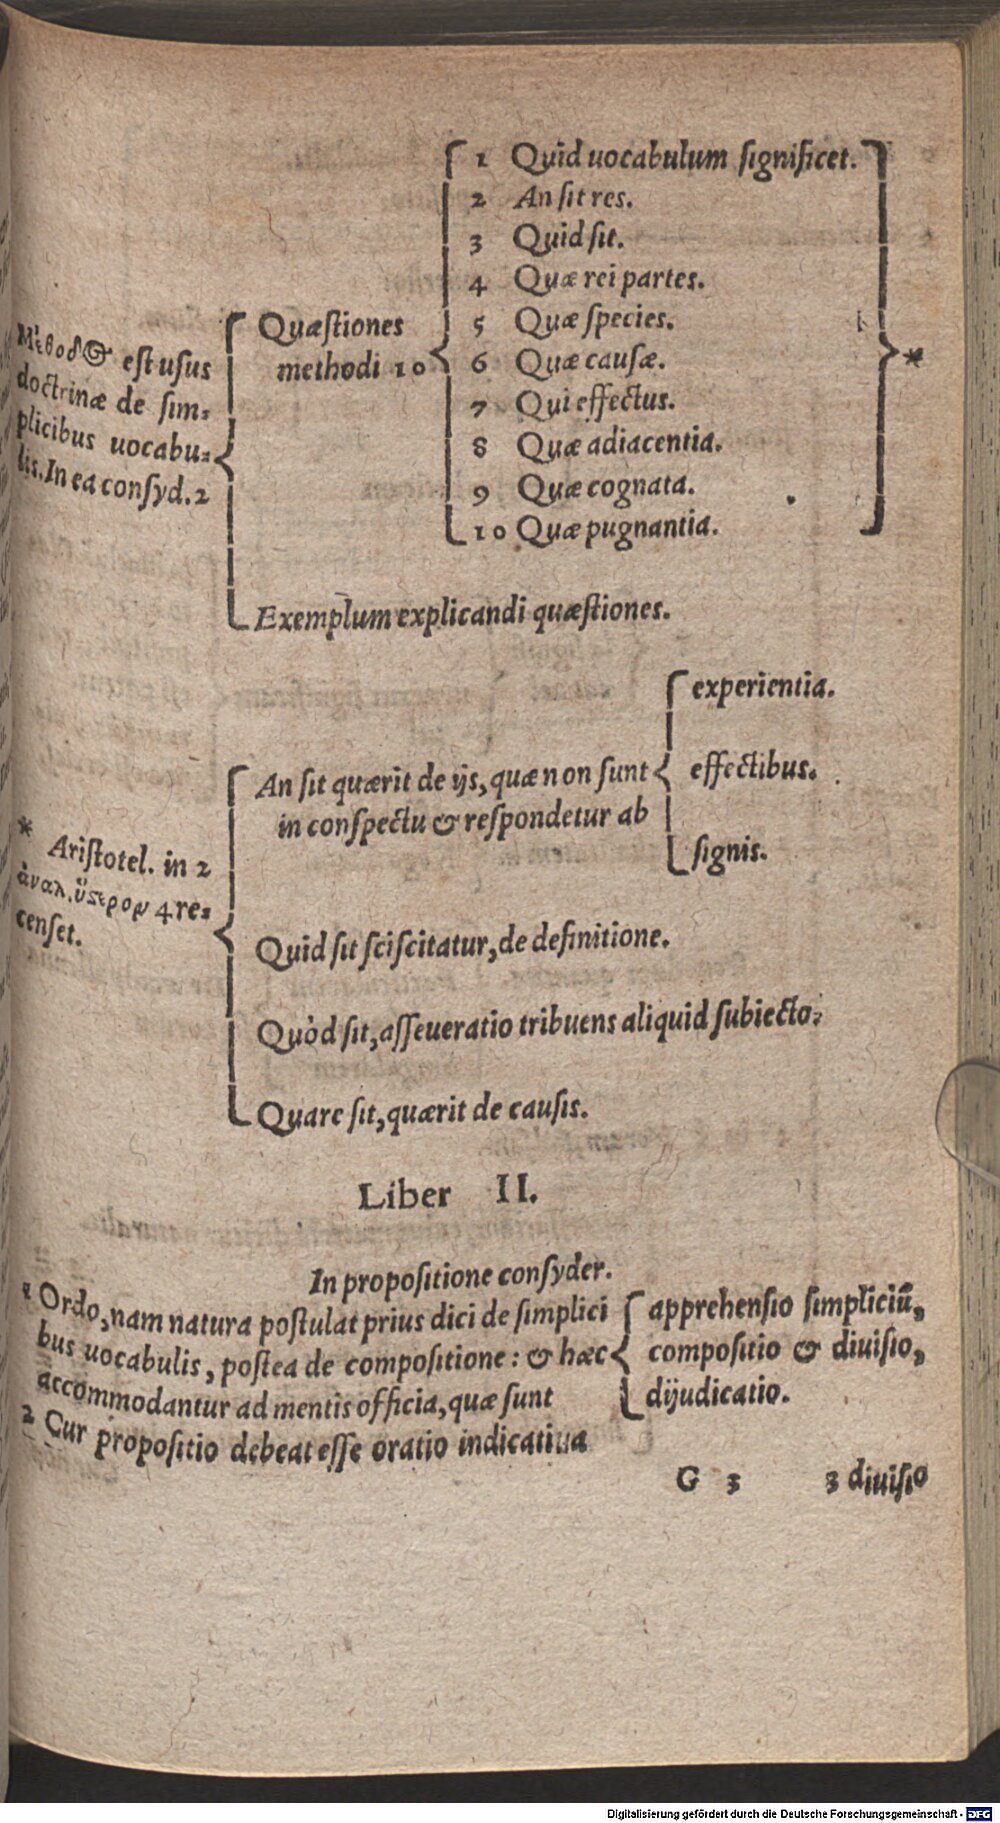 Μέθοδος est usus
doctrinæ de sim-
plicibus uocabu-
lis. In ea consyd. 2
Quæstiones
methodi 10
1 Quid uocabulum significet.
2 An sit res.
3 Quid sit.
4 Quæ rei partes.
5 Quæ species.
6 Quæ causæ.
7 Qui effectus.
8 Quæ adiacentia.
9 Quæ cognata.
10 Quæ pugnantia.
*
Exemplum explicandi quæstiones.
*
Aristotel. in 2
ἀναλ. ὕστερον 4 re-
censet.
An sit quærit de ijs, quæ non sunt
in conspectu & respondetur ab
experientia.
effectibus.
signis.
Quid sit sciscitatur, de definitione.
Quòd sit, asseueratio tribuens aliquid subiecto.
Quare sit, quærit de causis.
Liber II.
In propositione consyder.
1 Ordo, nam natura postulat prius dici de simplici
bus uocabulis, postea de compositione: & hæc
accommodantur ad mentis officia, quæ sunt
apprehensio simpliciū,
compositio & diuisio,
dijudicatio.
2 Cur propositio debeat esse oratio indicatiua
G 3 3 diuisio
Digitalisierung gefördert durch die Deutsche Forschungsgemeinschaft - DFG